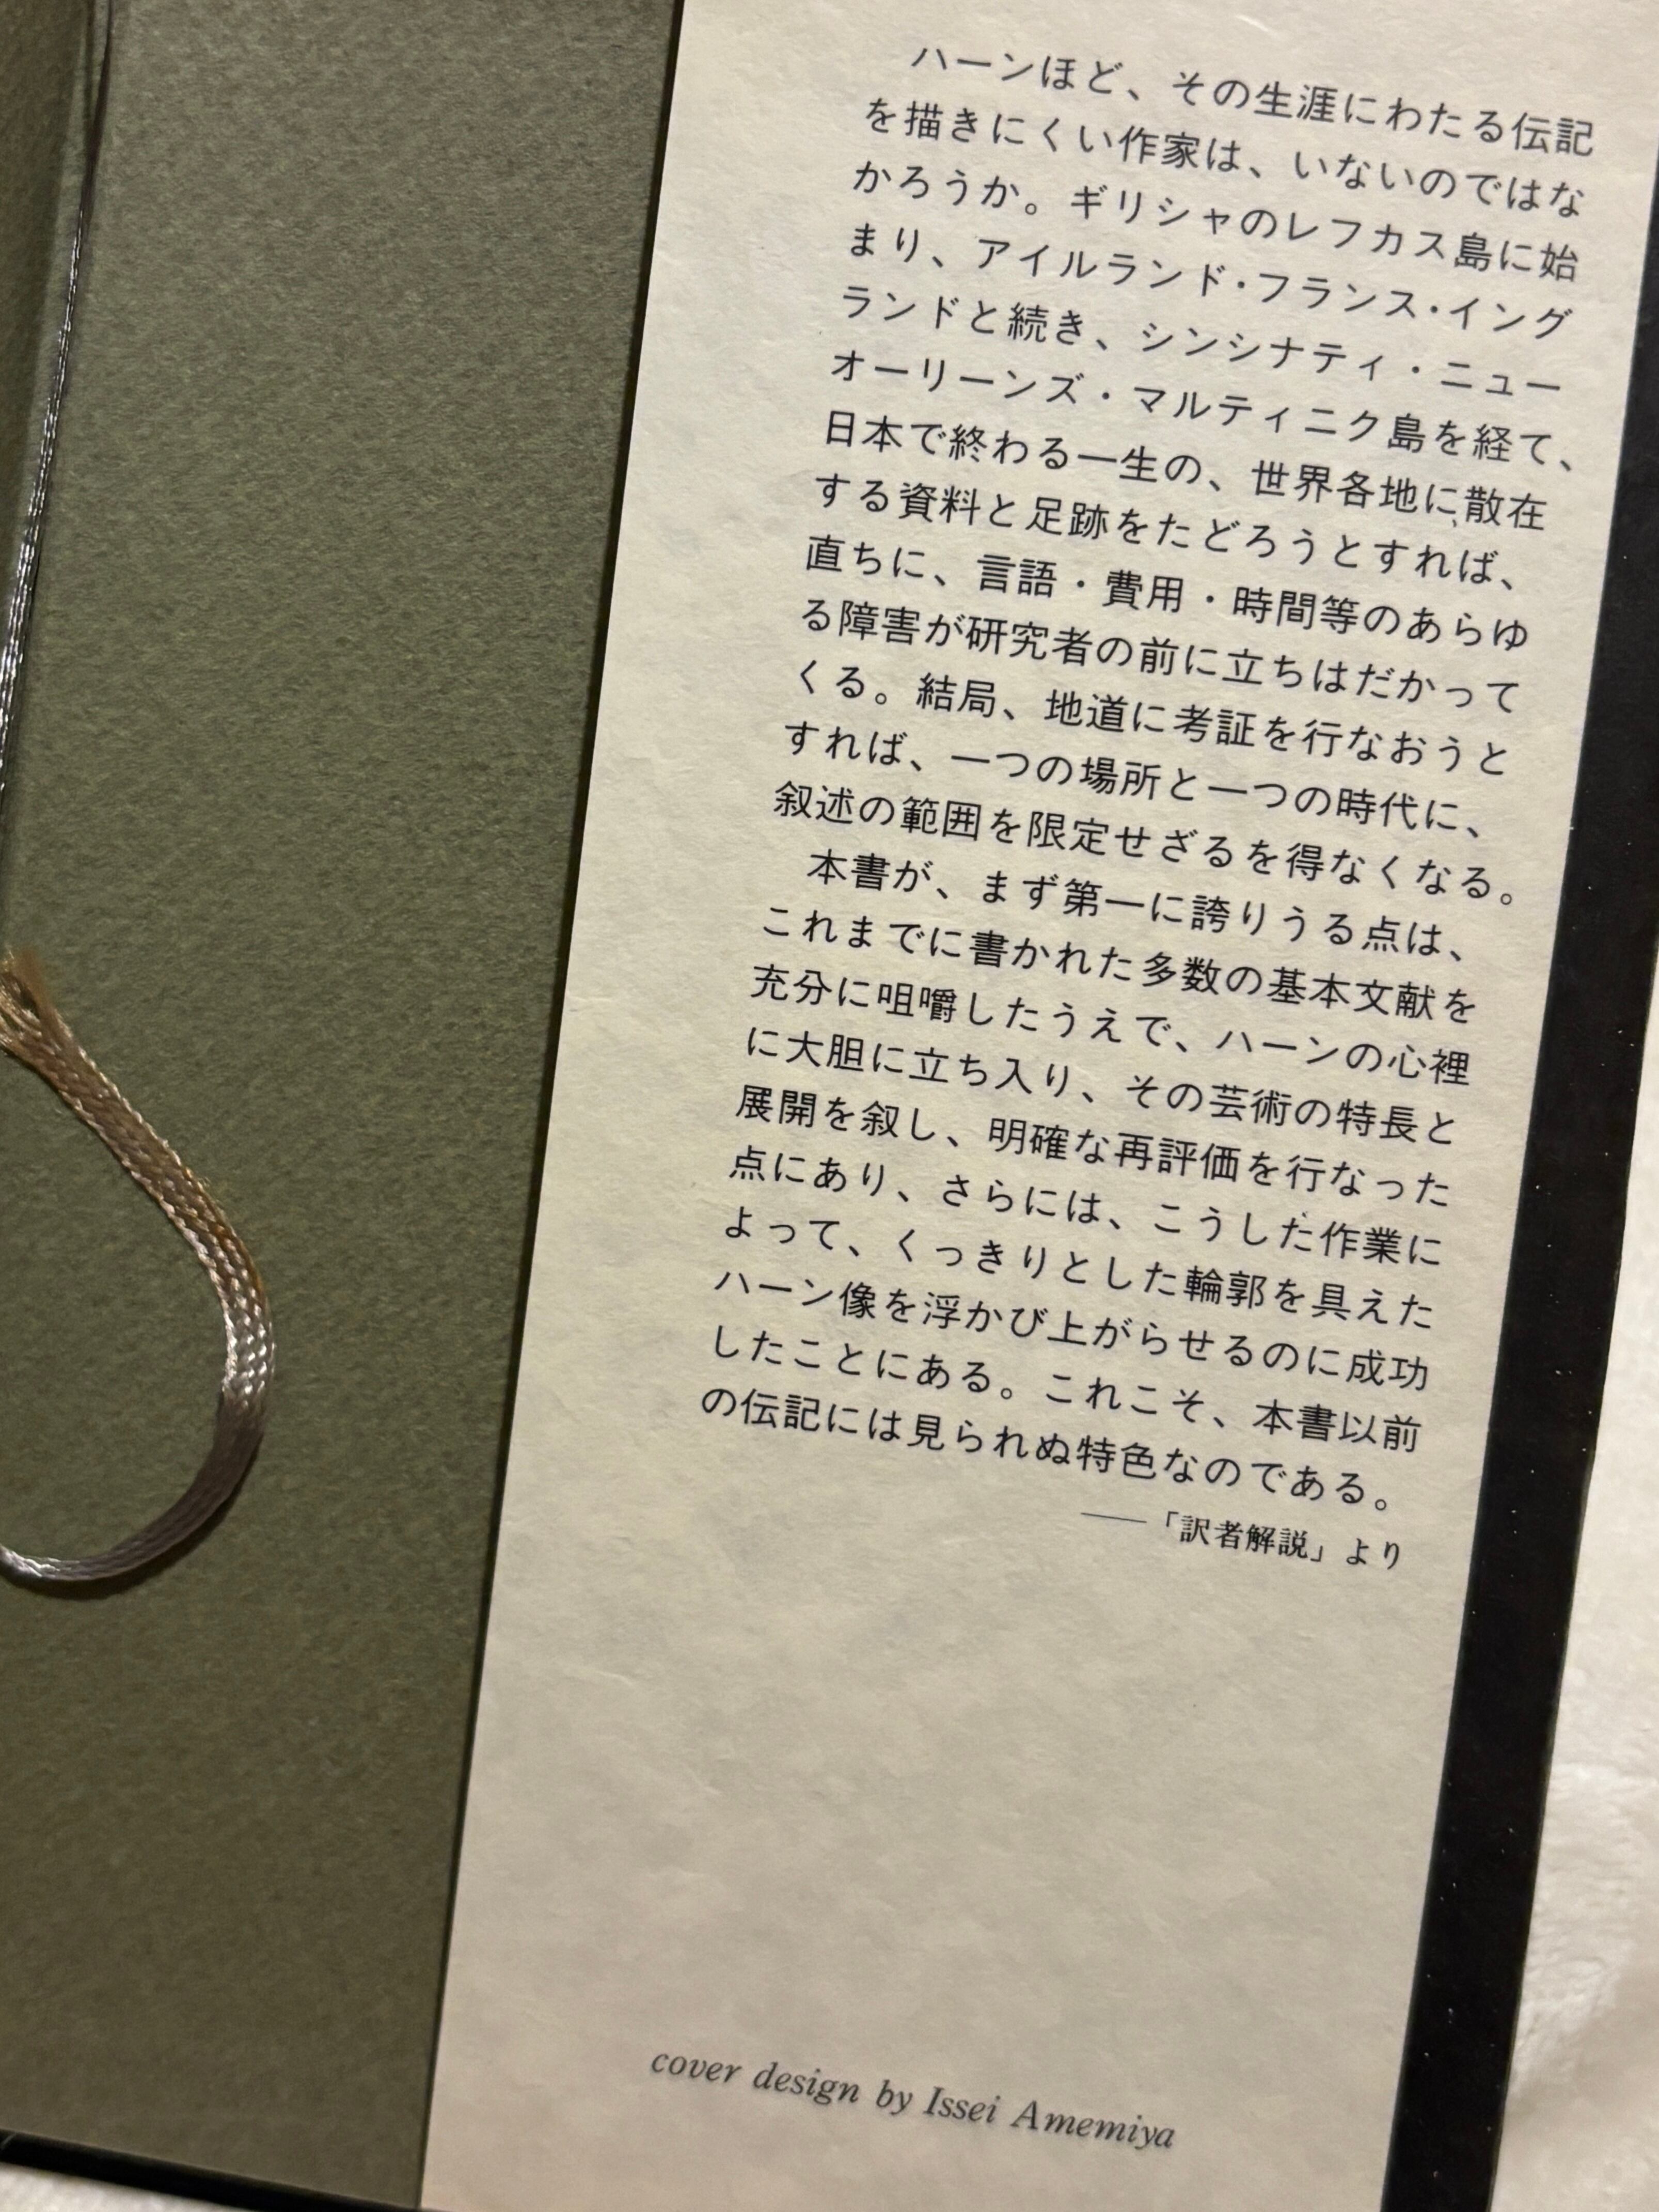 ハーンほど、その生涯にわたる伝記
を描きにくい作家は、いないのではな
かろうか。ギリシャのレフカス島に始
まり、アイルランド・フランス・イング
ランドと続き、シンシナティ・ニュー
オーリーンズ・マルティニク島を経て、
日本で終わる一生の、世界各地に散在
する資料と足跡をたどろうとすれば、
直ちに、言語・費用・時間等のあらゆ
る障害が研究者の前に立ちはだかって
くる。結局、地道に考証を行なおうと
すれば、一つの場所と一つの時代に、
叙述の範囲を限定せざるを得なくなる。
本書が、まず第一に誇りうる点は、
これまでに書かれた多数の基本文献を
充分に咀嚼したうえで、ハーンの心裡
に大胆に立ち入り、その芸術の特長と
展開を叙し、明確な再評価を行なった
点にあり、さらには、こうした作業に
よって、くっきりとした輪郭を具えた
ハーン像を浮かび上がらせるのに成功
したことにある。これこそ、本書以前
の伝記には見られぬ特色なのである。
——「訳者解説」より
cover design by Issei Amemiya